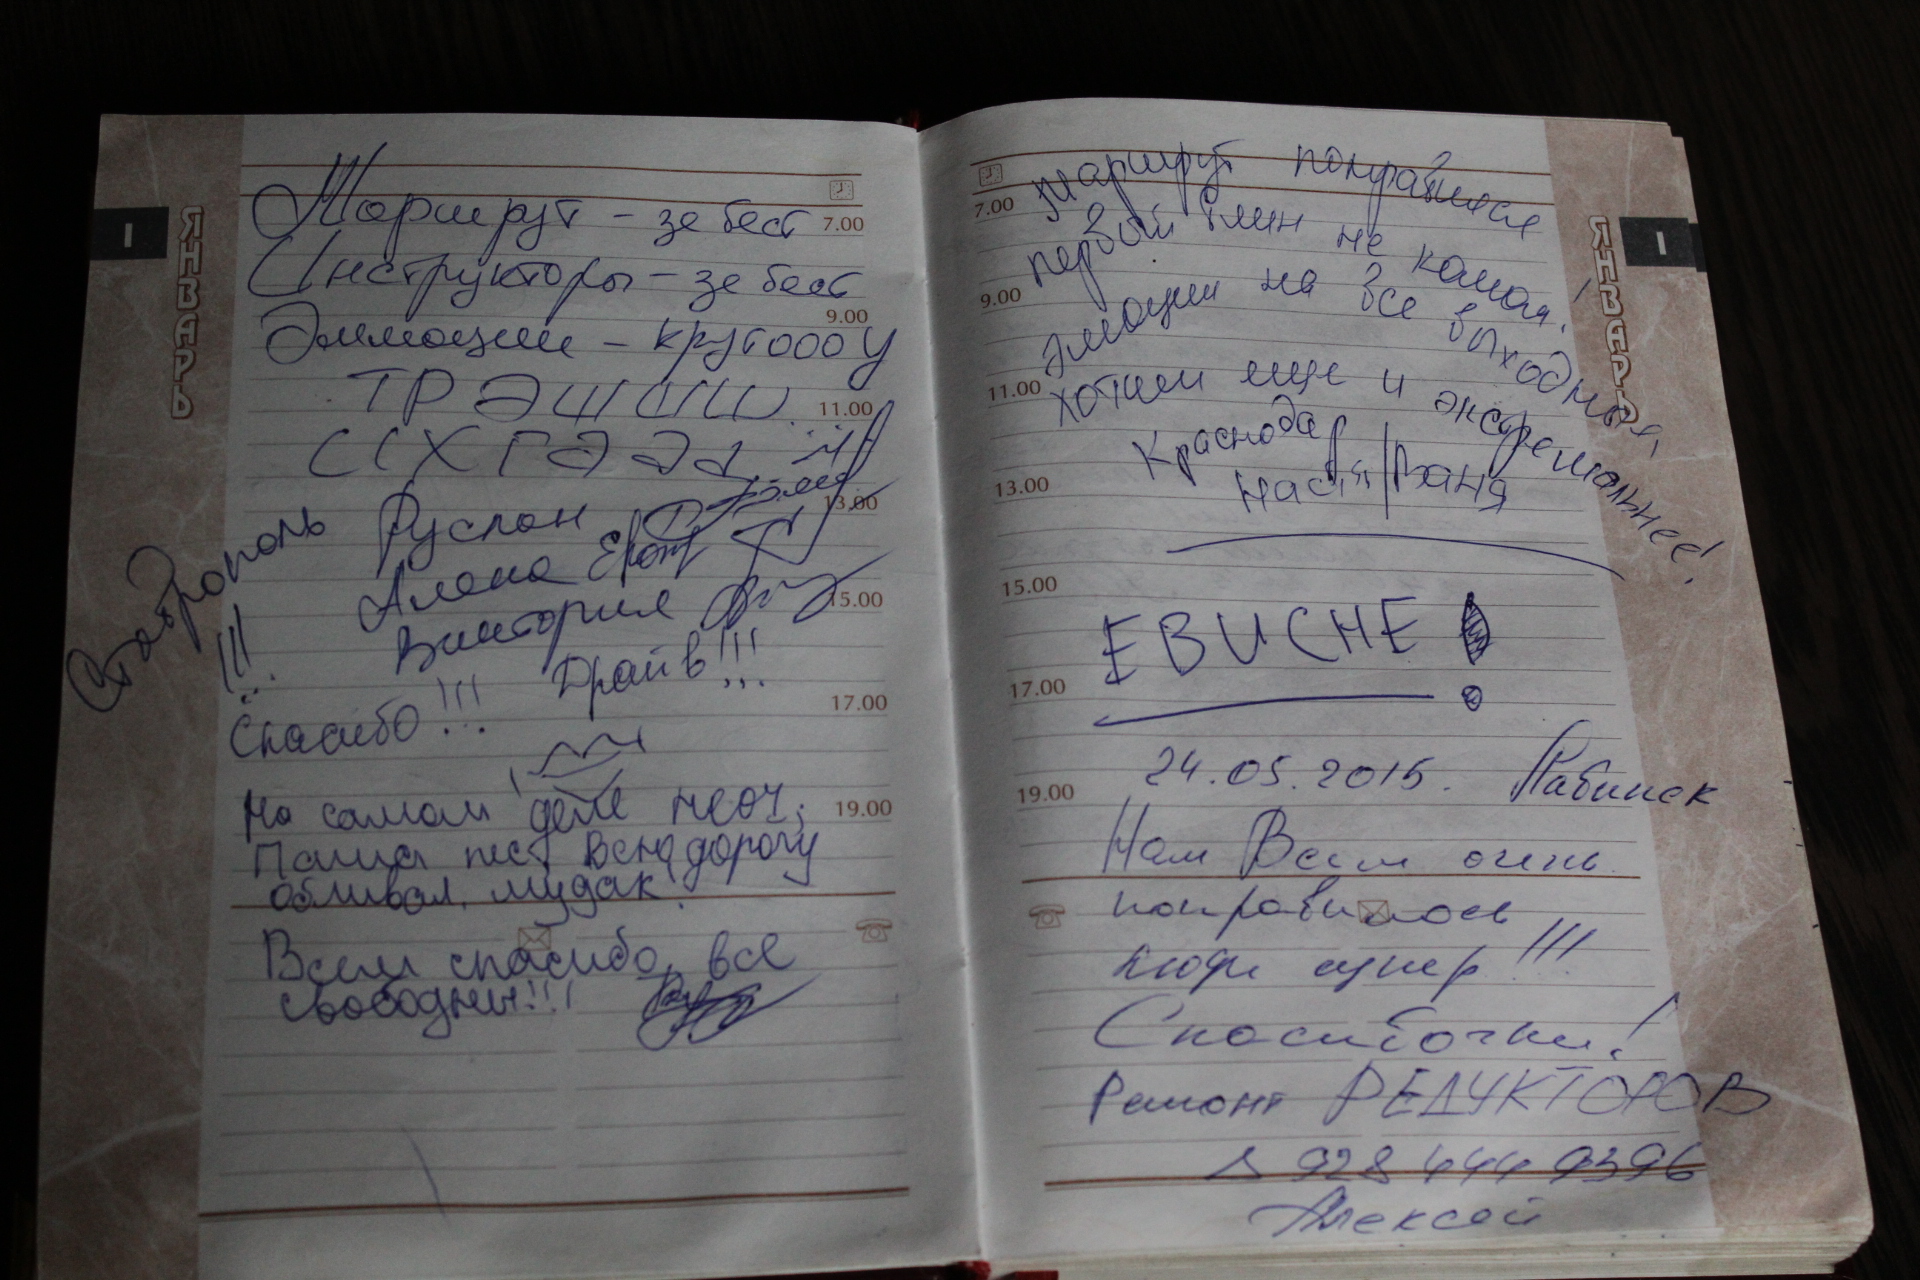 ЯНВАРЬ
1
Маршрут – зе бест
7.00
Инструкторы – зе бест
9.00
Эммоции – крутооо у
ТРЭШШШ
11.00
13.00
Ставрополь
!!!
Руслан
Алена
Виктория
15.00
Спасибо!!! Драйв!!!
17.00
На самом деле не оч,
19.00
Паша пес всю дорогу
обливал, мудак!
Всем спасибо, все
свободны!!!
ЯНВАРЬ
1
7.00
Маршрут понравился
первой блин не комом!
9.00
Эмоции на все выходные,
11.00
хотим еще и экстремальнее!
Краснодар
13.00
Настя/Ваня
15.00
EBUCHE!
17.00
24.05.2015. Лабинск
19.00
Нам Всем очень
понравилось
люди супер!!!
Спасибочки!
Ремонт РЕДУКТОРОВ
8 928 444 9396
Алексей